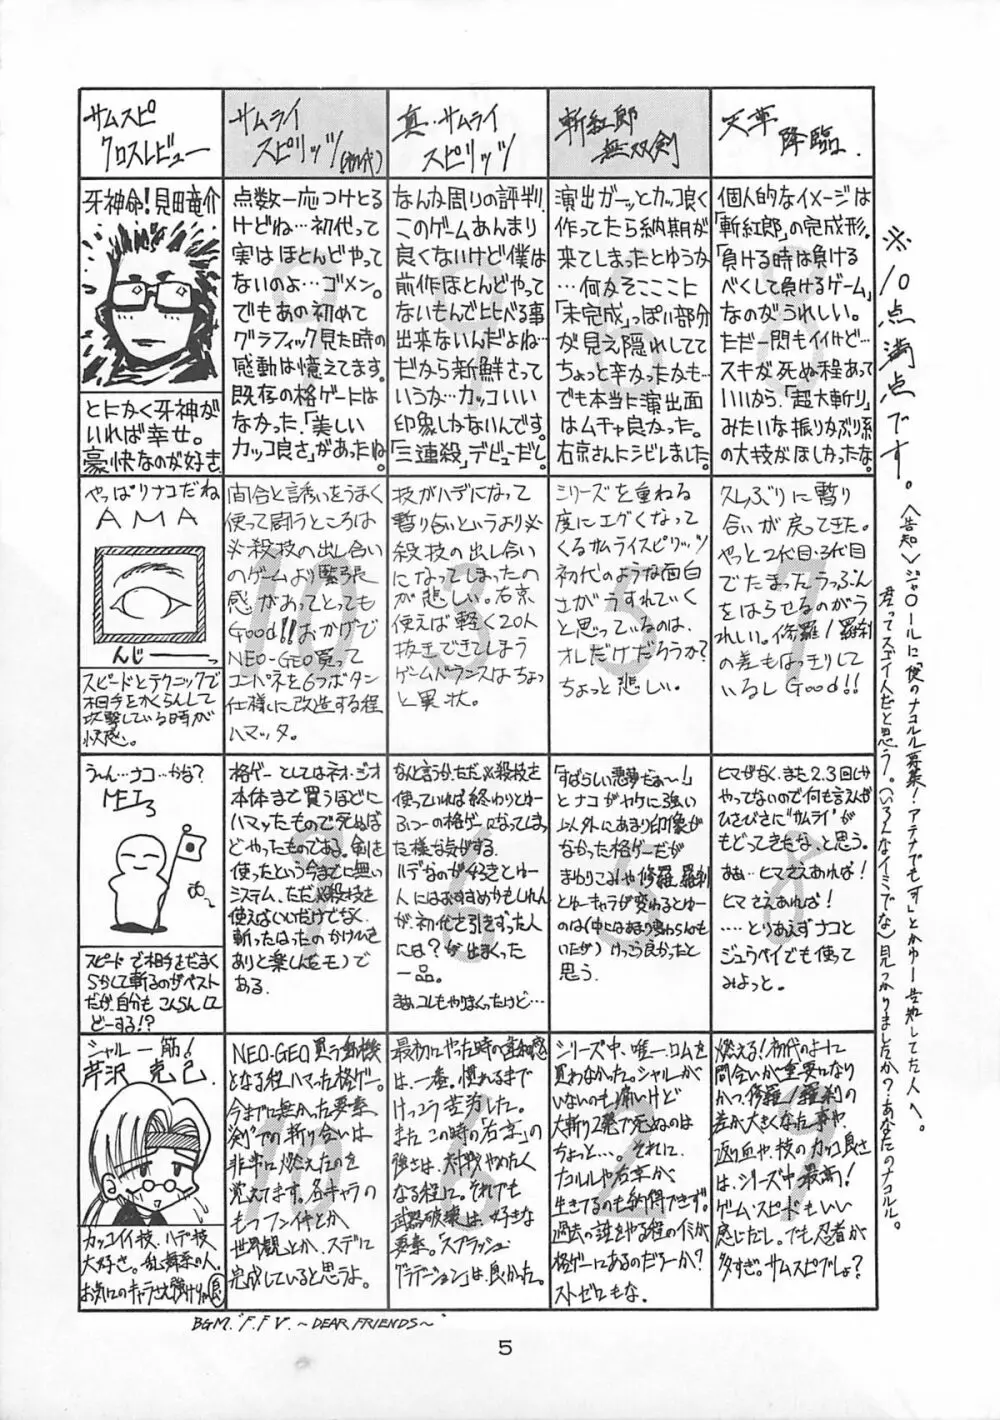 サムスピ
クロスレビュー
サムライ
スピリッツ(初代)
真・サムライ
スピリッツ
斬紅郎
無双剣
天草
降臨
牙神命!見田竜介
とにかく牙神が
いれば幸せ。
豪快なのが好き
点数一応つけとる
けどね…初代って
実はほとんどやって
ないのよ…ゴメン。
でもあの初めて
グラフィック見た時の
感動は憶えてます。
既存の格ゲーには
なかった「美しい
カッコ良さ」があったね。
9
なんな周りの評判、
このゲームあんまり
良くないけど僕は
前作ほとんどやって
ないもんで比べる事
出来ないんだよね…
だから新鮮さって
いうか…カッコいい
印象しかないんです。
「三連殺」デビューだし。
9
演出ガーッとカッコ良く
作ってたら納期が
来てしまったとゆうか
…何かそこここに
「未完成」っぽい部分
が見え隠れしてて
ちょっと辛かったかも…
でも本当に演出面
はムチャ良かった。
右京さんにシビレました。
6
個人的なイメージは
「斬紅郎」の完成形。
「負ける時は負ける
べくして負けるゲーム」
なのがうれしい。
ただ一閃もイイけど…
スキが死ぬ程あって
いいから、「超大斬り」
みたいな振りかぶり系
の大技がほしかったな。
8
やっぱりナコだね
AMA
んじーーっ
スピードとテクニックで
相手をかくらんして
攻撃している時が
快感。
間合と誘いをうまく
使って闘うところは
必殺技の出し合い
のゲームより緊張
感があってとっても
Good!!おかげで
NEO-GEO買って
コンパネを6つボタン
仕様に改造する程
ハマッタ。
10
技がハデになって
斬り合いというより必
殺技の出し合い
になってしまったの
が悲しい。右京
使えば軽く20人
抜きできてしまう
ゲームバランスはちょっ
と異状。
3
シリーズを重ねる
度にエグくなって
くるサムライスピリッツ
初代のような面白
さがうすれていく
と思っているのは、
オレだけだろうか?
ちょっと悲しい。
5
久しぶりに斬り
合いが戻ってきた。
やっと2代目・3代目
でたまったうっぷん
をはらせるのがう
れしい。修羅/羅刹
の差もはっきりして
いるしGood!!
7
う〜ん…ナコ…かな?
MEI
スピードで相手をだまく
らかして斬るのがベスト
だが、自分もこんらん
どーする!?
格ゲーとしてはネオ・ジオ
本体まで買うほどに
ハマッたもので死ぬほ
どやったものである。剣を
使ったという今までに無い
システム、ただ必殺技を
使えばいいだけでなく、
斬ったはったのかけひきを
ありと楽しんだモノで
ある。
9
なんと言うか、ただ必殺技を
使っていれば終わりとゆー
ふつーの格ゲーになってしまっ
た様な気がする。
ハデなのが好きとゆー
人にはおすすめかもしれん
が、初代を引きずった人
には?が出まくった
一品。
まぁ、コレもやりまくったけど…
6
「すばらしい悪夢だぁ〜!」
とナコがヤケに強い
以外にあまり印象が
なかった格ゲーだが
まわりこみや修羅、羅刹
とゆーキャラが変わるとゆー
のは(中にはあまり変わらんも
いたが)けっこう良かったと
思う。
5
ヒマがなく、また2.3回しか
やってないので何も言えんが
ひさびさに“サムライ”が
もどってきたな、と思う。
まぁ…ヒマさえあれば!
ヒマさえあれば!
…とりあえずナコと
ジュウベイでも使って
みよっと。
8
シャルー筋!
芹沢克己
カッコイイ技、ハデな技
大好き。乱舞系の人。
お気にのキャラさえ強けりゃ良
NEO-GEO買う動機
となる程ハマった格ゲー。
今までに無かった要素
“剣”での斬り合いは
非常に燃えたのを
覚えてます。各キャラの
もつフンイキとか
世界観とか、スデに
完成していると思うよ。
10
最初にやった時の違和感
は、一番。慣れるまで
けっこう苦労した。
またこの時の「右京」の
強さは、対戦やめたく
なる程に。それでも
武器破壊は、好きな
要素。「スプラッシュ・
グラデーション」は、良かった。
6
シリーズ中、唯一、ロムを
買わなかった。シャルがい
ないのも痛いけど
大斬り2発で死ぬのは
ちょっと…。それに、
ナコルルや右京が
生きてるのも納得できず。
過去の話をやる程のイミが
格ゲーにあるのだろーか?
ストゼロもな。
2
燃える!初代のように
間合いが重要になり
かつ、修羅/羅刹の
差が大きくなった事や、
返り血や、技のカッコ良さ
は、シリーズ中、最高!
ゲーム・スピードもいい
感じだし。でも、忍者が
多すぎ。サムスピでしょ?
9
※10点満点です。
〈告知〉ジャ〇ールに「使のナコルル募集!アテナでも可」とかゆー告知してた人へ。
君ってスゴイ人だと思う。(いろんなイミでな)見つかりましたか?あなたのナコルル。
BGM. "F.F V. 〜DEAR FRIENDS〜"
5